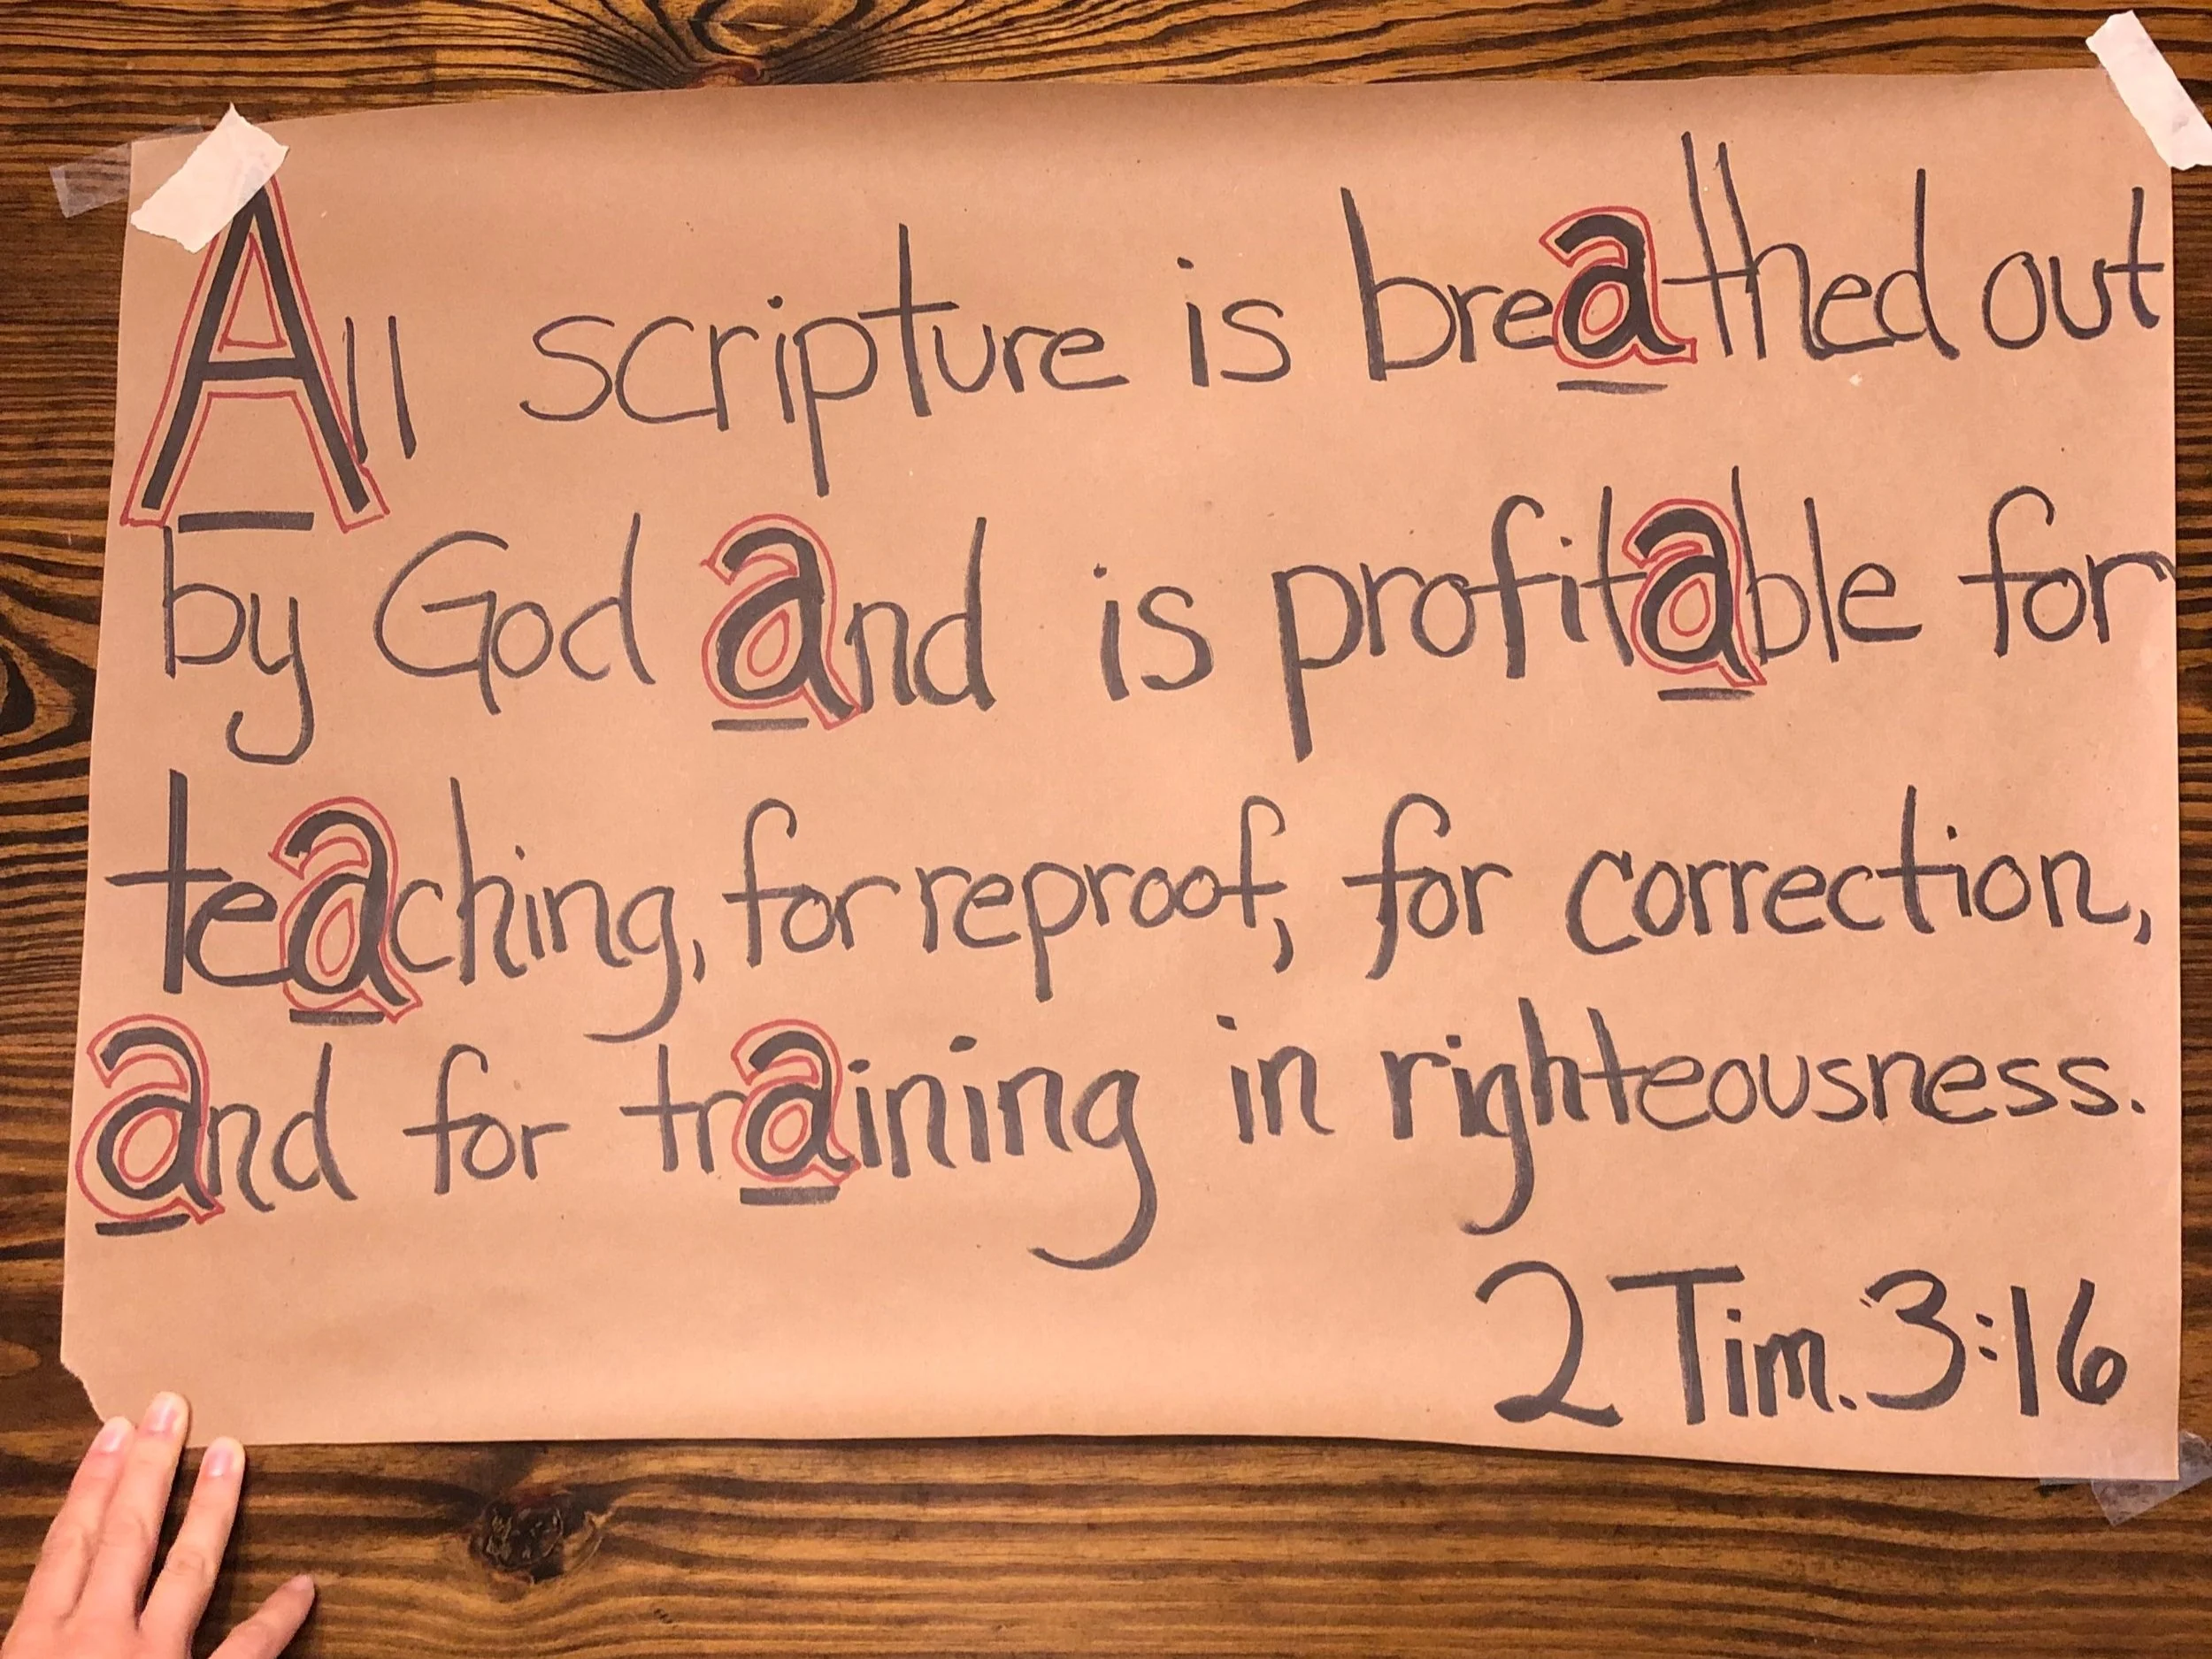 All scripture is breathed out
by God and is profitable for
teaching, for reproof, for correction,
and for training in righteousness.
2 Tim. 3:16